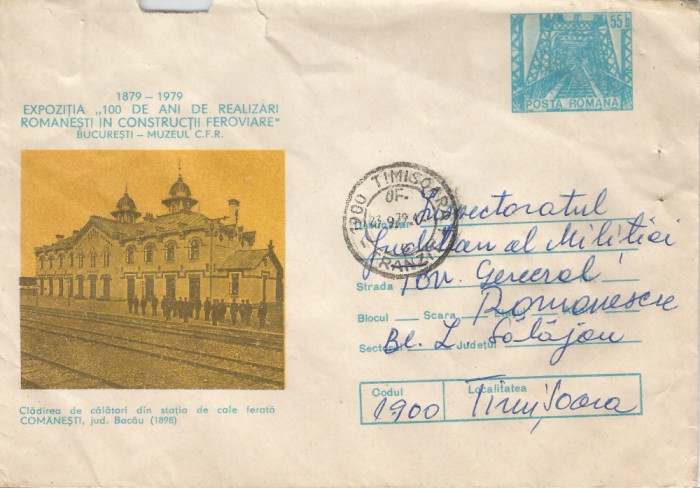 55 b
POSTA ROMANA
1879 – 1979
EXPOZIȚIA „100 DE ANI DE REALIZĂRI
ROMÂNEȘTI ÎN CONSTRUCȚII FEROVIARE“
BUCUREȘTI – MUZEUL C.F.R.
1900 TIMIȘOARA
OF-
23.9.79
TRANZIT
Inspectoratul
Județean al Militiei
Strada Ton. General
Blocul Scara Romanescu
Sectorul Județul Bl. Z Sălăjan
Codul Localitatea
1900 Timișoara
Clădirea de călători din stația de cale ferată
COMANEȘTI, jud. Bacău (1898)